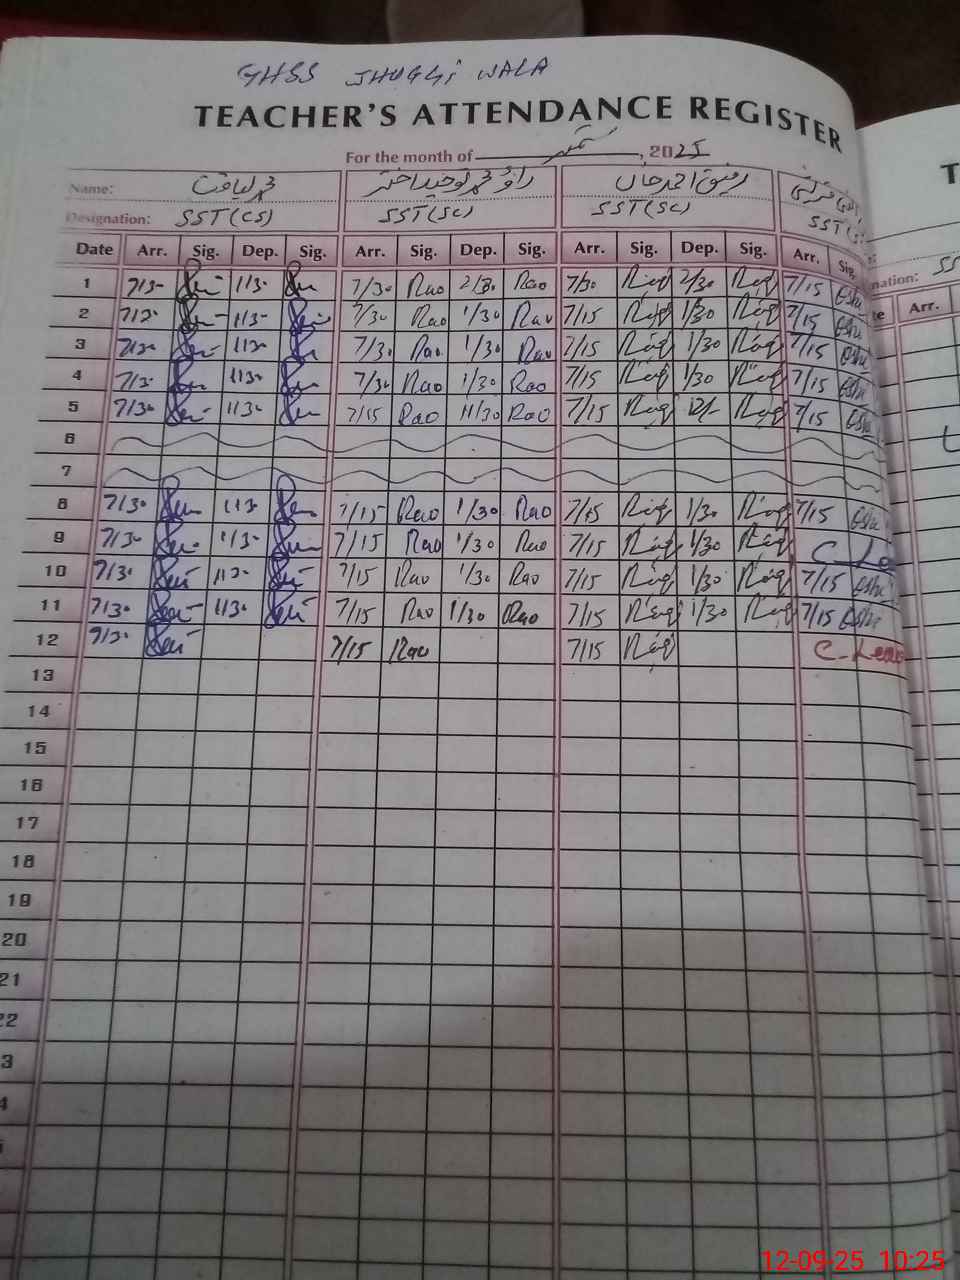 GHSS JHUGGI WALA
TEACHER'S ATTENDANCE REGISTER
For the month of ستمبر, 2025
Name: محمد لیاقت راؤ محمد توحید اختر رفیق احمد خاں
Designation: SST(CS) SST(SC) SST(SC) SST(S
Date Arr. Sig. Dep. Sig. Arr. Sig. Dep. Sig. Arr. Sig. Dep. Sig. Arr. Sig. Arr.
1 7/30 1/30 7/30 Rao 2/30 Rao 7/30 2/30 7/15
2 7/30 1/30 7/30 Rao 1/30 Rao 7/15 1/30 7/15
3 7/30 1/30 7/30 Rao 1/30 Rao 7/15 1/30 7/15
4 7/30 1/30 7/30 Rao 1/30 Rao 7/15 1/30 7/15
5 7/30 1/30 7/15 Rao 11/30 Rao 7/15 12/- 7/15
6
7
8 7/30 1/30 7/15 Rao 1/30 Rao 7/15 1/30 7/15
9 7/30 1/30 7/15 Rao 1/30 Rao 7/15 1/30 C_Le
10 7/30 1/30 7/15 Rao 1/30 Rao 7/15 1/30 7/15
11 7/30 1/30 7/15 Rao 1/30 Rao 7/15 1/30 7/15
12 7/30 7/15 Rao 7/15 C-Leave
13
14
15
16
17
18
19
20
21
22
3
4
12-09-25 10:25